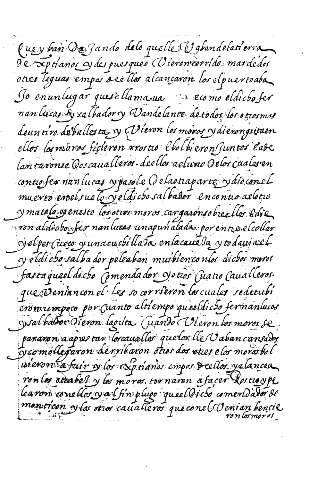 que yban Dexando de lo que ellos llebaban de la tierra
de xptianos y des pues que oVieron corrido mas de dos
otres leguas empos de ellos alcançaron los el puerto aba
Jo en un lugar que se llama como el dicho fer
nan lucas y xalbador yvan delante de todos los otros mas
de un tiro de ballesta y Vieron los moros y dieron grita en
ellos los moros ficieron rostro e bolbieron Juntos e ade
lantaronse Dos cavalleros de ellos a el uno De los cuales en
contro fernan lucas y pasole De la otra parte y dio con el
muerto en el suelo y el dicho salbador encontro a el otro
y matolo y en esto los otros moros cargaron sobre ellos e die
ron al dicho fernan lucas una puñalada por entre el collar
y el pescueço y una cuchillada en la caveça y todavia el
y el dicho salbador peleaban mui bien con los dichos moros
fasta que el dicho Comendador y otros Cuatro Cavalleros
que Venian con el les socorrieron los cuales se detubi
eron un poco por cuanto al tiempo que el dicho fernan lucas
y salbador dieron la grita Cuando Vieron los moros se
pararon a apretar los cavallos que los llevaban cansados
y como llegaron derribaron otros dos de ellos e los moros bol
vieron a fuir y los xptianos empos de ellos y alancea
ron los y los moros tornaron a facer Rostro y pe
learon con ellos y al fin plugo que el dicho comendador de
montiçon y los otros cavalleros que con el Venian bencie
ron los moros